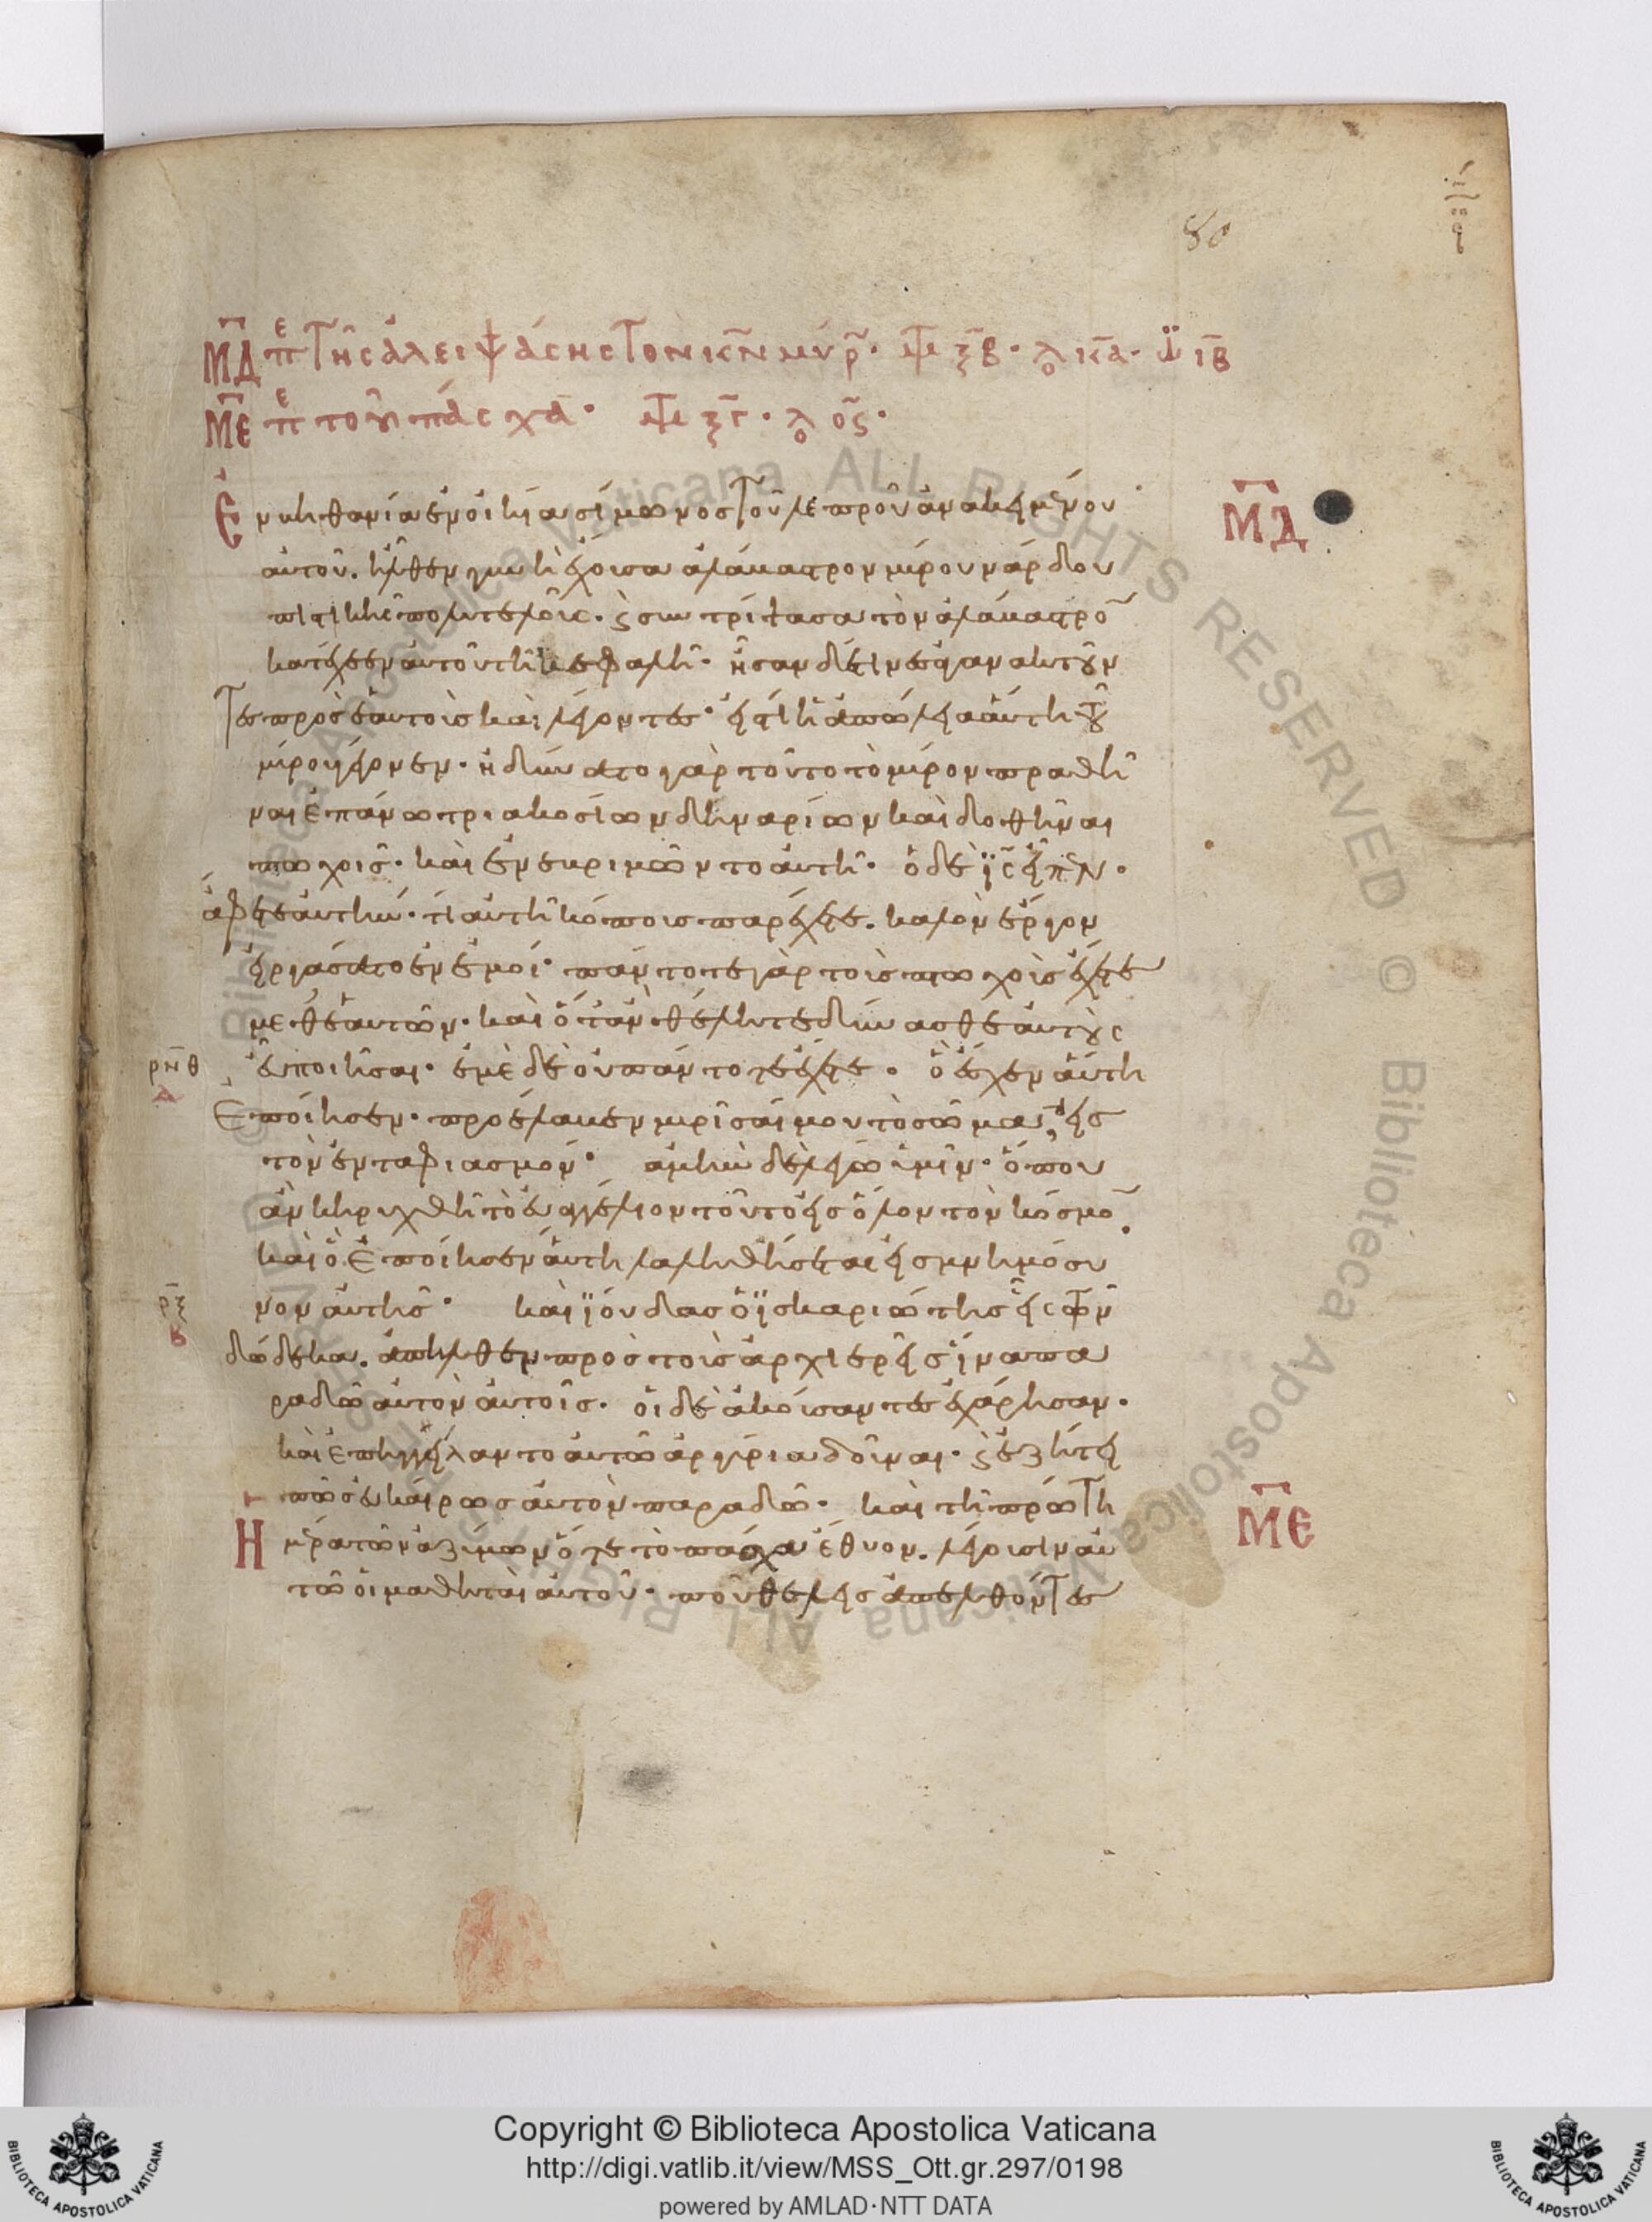 80
ΜΔ πε τῆς ἀλειψάσης τὸν κ̅ν̅ μύρ· ΜΤ ξβ· ΛΟ κα· ΙΩ ιβ
ΜΕ πε τοῦ πάσχα· ΜΤ ξγ· ΛΟ ος·
ἐν βηθανία ἐν οικία σίμωνος τοῦ λεπροῦ ἀνακειμένου ΜΔ
αὐτοῦ. ἦλθεν γυνὴ ἔχουσα ἀλάβαστρον μύρου νάρδου
πιστικῆς πολυτελοῦς. ϗ συντρίψασα τὸν ἀλάβαστρο̅
κατέχεεν αὐτοῦ τῆ κεφαλῆ· ἦσαν δέ τινες ἀγανακτοῦν
τες πρὸς ἑαυτοὺς καὶ λέγοντες· εἰς τί ἡ ἀπώλεια αὕτη τοῦ
μύρου γέγονεν· ἠδύνατο γὰρ τοῦτο τὸ μύρον πραθῆ
ναι ἐπάνω τριακοσίων δηναρίων καὶ δοθῆναι
πτωχοῖς· καὶ ἐνεβριμῶντο αὐτῆ· ὁ δὲ ι̅ς̅ εἶπεν·
ἄφετε αὐτήν· τί αὐτῆ κόπους παρέχετε. καλὸν ἔργον
εἰργάσατο ἐν ἐμοί· πάντοτε γὰρ τοὺς πτωχοὺς ἔχετε
μεθ ἑαυτῶν· καὶ ὅταν θέλητε δύνασθε αὐτοὺς
ρνθ εὖ ποιῆσαι· ἐμὲ δὲ οὐ πάντοτε ἔχετε· ὃ ἔσχεν αὕτη
Ἐποίησεν· προέλαβεν μυρίσαι μου τὸ σῶμα, εἰς
τὸν ἐνταφιασμόν· ἀμὴν δὲ λέγω ὑμῖν· ὅπου
ἂν κηρυχθῆ τὸ εὐαγγέλιον τοῦτο εἰς ὅλον τὸν κόσμο̅
καὶ ὃ ἐποίησεν αὕτη λαληθήσεται εἰς μνημόσυ
ρξ νον αὐτῆς· καὶ ϊούδας ὁ ϊσκαριώτης εἷς τῶν
δώδεκα. ἀπῆλθεν πρὸς τοὺς ἀρχιερεῖς ἵνα πα
ραδῶ αὐτὸν αὐτοῖς. οἱ δὲ ἀκούσαντες ἐχάρησαν.
καὶ ἐπηγγείλαντο αὐτῶ ἀργύρια δοῦναι. ϗ ἐζήτει
πῶς εὐκαίρως αὐτὸν παραδῶ. καὶ τῆ πρώτη
Ἡμέρα τῶν ἀζύμων ὅτε τὸ πάσχα ἔθυον. λέγουσιν αὐ ΜΕ
τῶ οἱ μαθηταὶ αὐτοῦ· ποῦ θέλεις ἀπελθόντες
© Biblioteca Apostolica Vaticana ALL RIGHTS RESERVED © Biblioteca Apostolica Vaticana ALL RIGHTS RESERVED
Copyright © Biblioteca Apostolica Vaticana
http://digi.vatlib.it/view/MSS_Ott.gr.297/0198
powered by AMLAD·NTT DATA
BIBLIOTECA APOSTOLICA VATICANA
BIBLIOTECA APOSTOLICA VATICANA